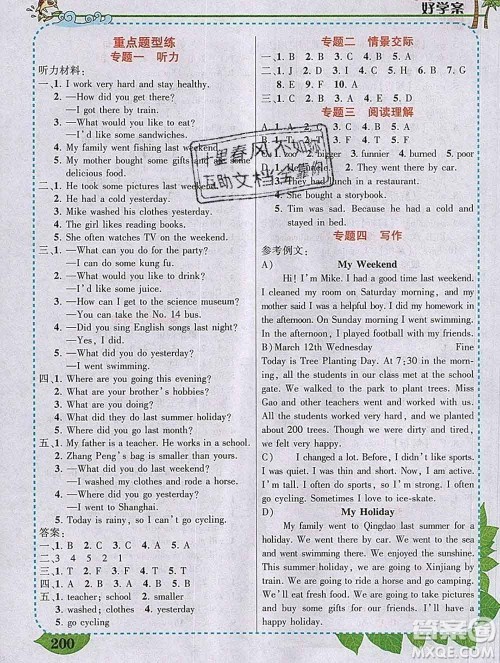 好学案
重点题型练
专题一 听力
听力材料:
一、1. I work very hard and stay healthy.
2. —How did you get there?
—I got there by train.
3. —What would you like to eat?
—I'd like some sandwiches.
4. My family went fishing last weekend.
5. My mother bought some gifts and
delicious food.
二、1. He took some pictures last weekend.
2. I had a cold yesterday.
3. Mike washed his clothes yesterday.
4. The girl likes reading books.
5. She often watches TV on the weekend.
三、1. —What can you do for the party?
—I can do
2. —What would you like?
—I'd like some juice.
3. —How can I get to the science museum?
—You can take the No. 14 bus.
4. —Did you sing English songs last night?
—Yes, I did.
5. —What did you do yesterday?
—I went swimming.
四、1. Where are you going this evening?
2. What are your brother's hobbies?
3. What did you do yesterday?
4. What did they do last summer holiday?
5. Where did you go last month?
五、1. My father is a teacher. He works in a school.
2. Zhang Peng's bag is smaller than yours.
3. —What did you do last weekend?
—I washed my clothes.
4. —Where did you go yesterday?
—I went to Shanghai.
5. Today is rainy, so I can't go cycling.
答案:
一、1. B 2. C 3. A 4. C 5. A
二、3 4 5 2 1
三、1. T 2. F 3. T 4. F 5. F
四、1. B 2. A 3. A 4. B 5. A
五、1. teacher; school 2. smaller
3. washed; clothes 4. yesterday
5. rainy; go cycling
200
专题二 情景交际
一、1. B 2. A 3. A 4. C 5. B
二、1. D 2. C 3. I 4. B 5. J 6. G 7. H
8. E 9. F 10. A
三、1. E 2. D 3. A 4. B 5. C
专题三 阅读理解
A. 1. C 2. B 3. C 4. B 5. C
B. 1. zoo 2. bigger 3. funnier 4. burned 5. park
2. They went there by car.
3. They had lunch in a restaurant.
4. She bought a storybook.
5. Tim was sad. Because he had a cold and
stayed in bed.
专题四 写作
参考例文:
A) My Weekend
Hi! I'm Mike. I had a good time last weekend.
I cleaned my room on Saturday morning, and my
mother said I was a helpful boy. I did my homework in
the afternoon. On Sunday, I played football with my friends.
In the afternoon, I went swimming. I had a busy weekend.
B) March 12th Wednesday Fine
Today is Tree Planting Day. At 7:30 in the morning,
all students in our class met at the school
gate. We walked to the park to plant trees. Miss
Gao and other teachers went there with us. All the
students worked very hard, and we planted about
200 trees. Then we went home in the afternoon. We
were tired and dirty but happy.
C) Years ago, I didn't like sports. So I was short.
I was quiet. I was thin and short. Now, I am active
and tall. I often do sports, so I am strong. I often
go cycling. I love to ice-skate.
My Holiday
My family went to Qingdao last summer for a
holiday. We went there by plane. It was hot there.
We went swimming in the afternoon. We had a good time.
This summer holiday, we are going to Xinjiang by train.
We are going to ride a horse and go camping there.
We are going to eat some fruit and buy some gifts.
We will have a good time.